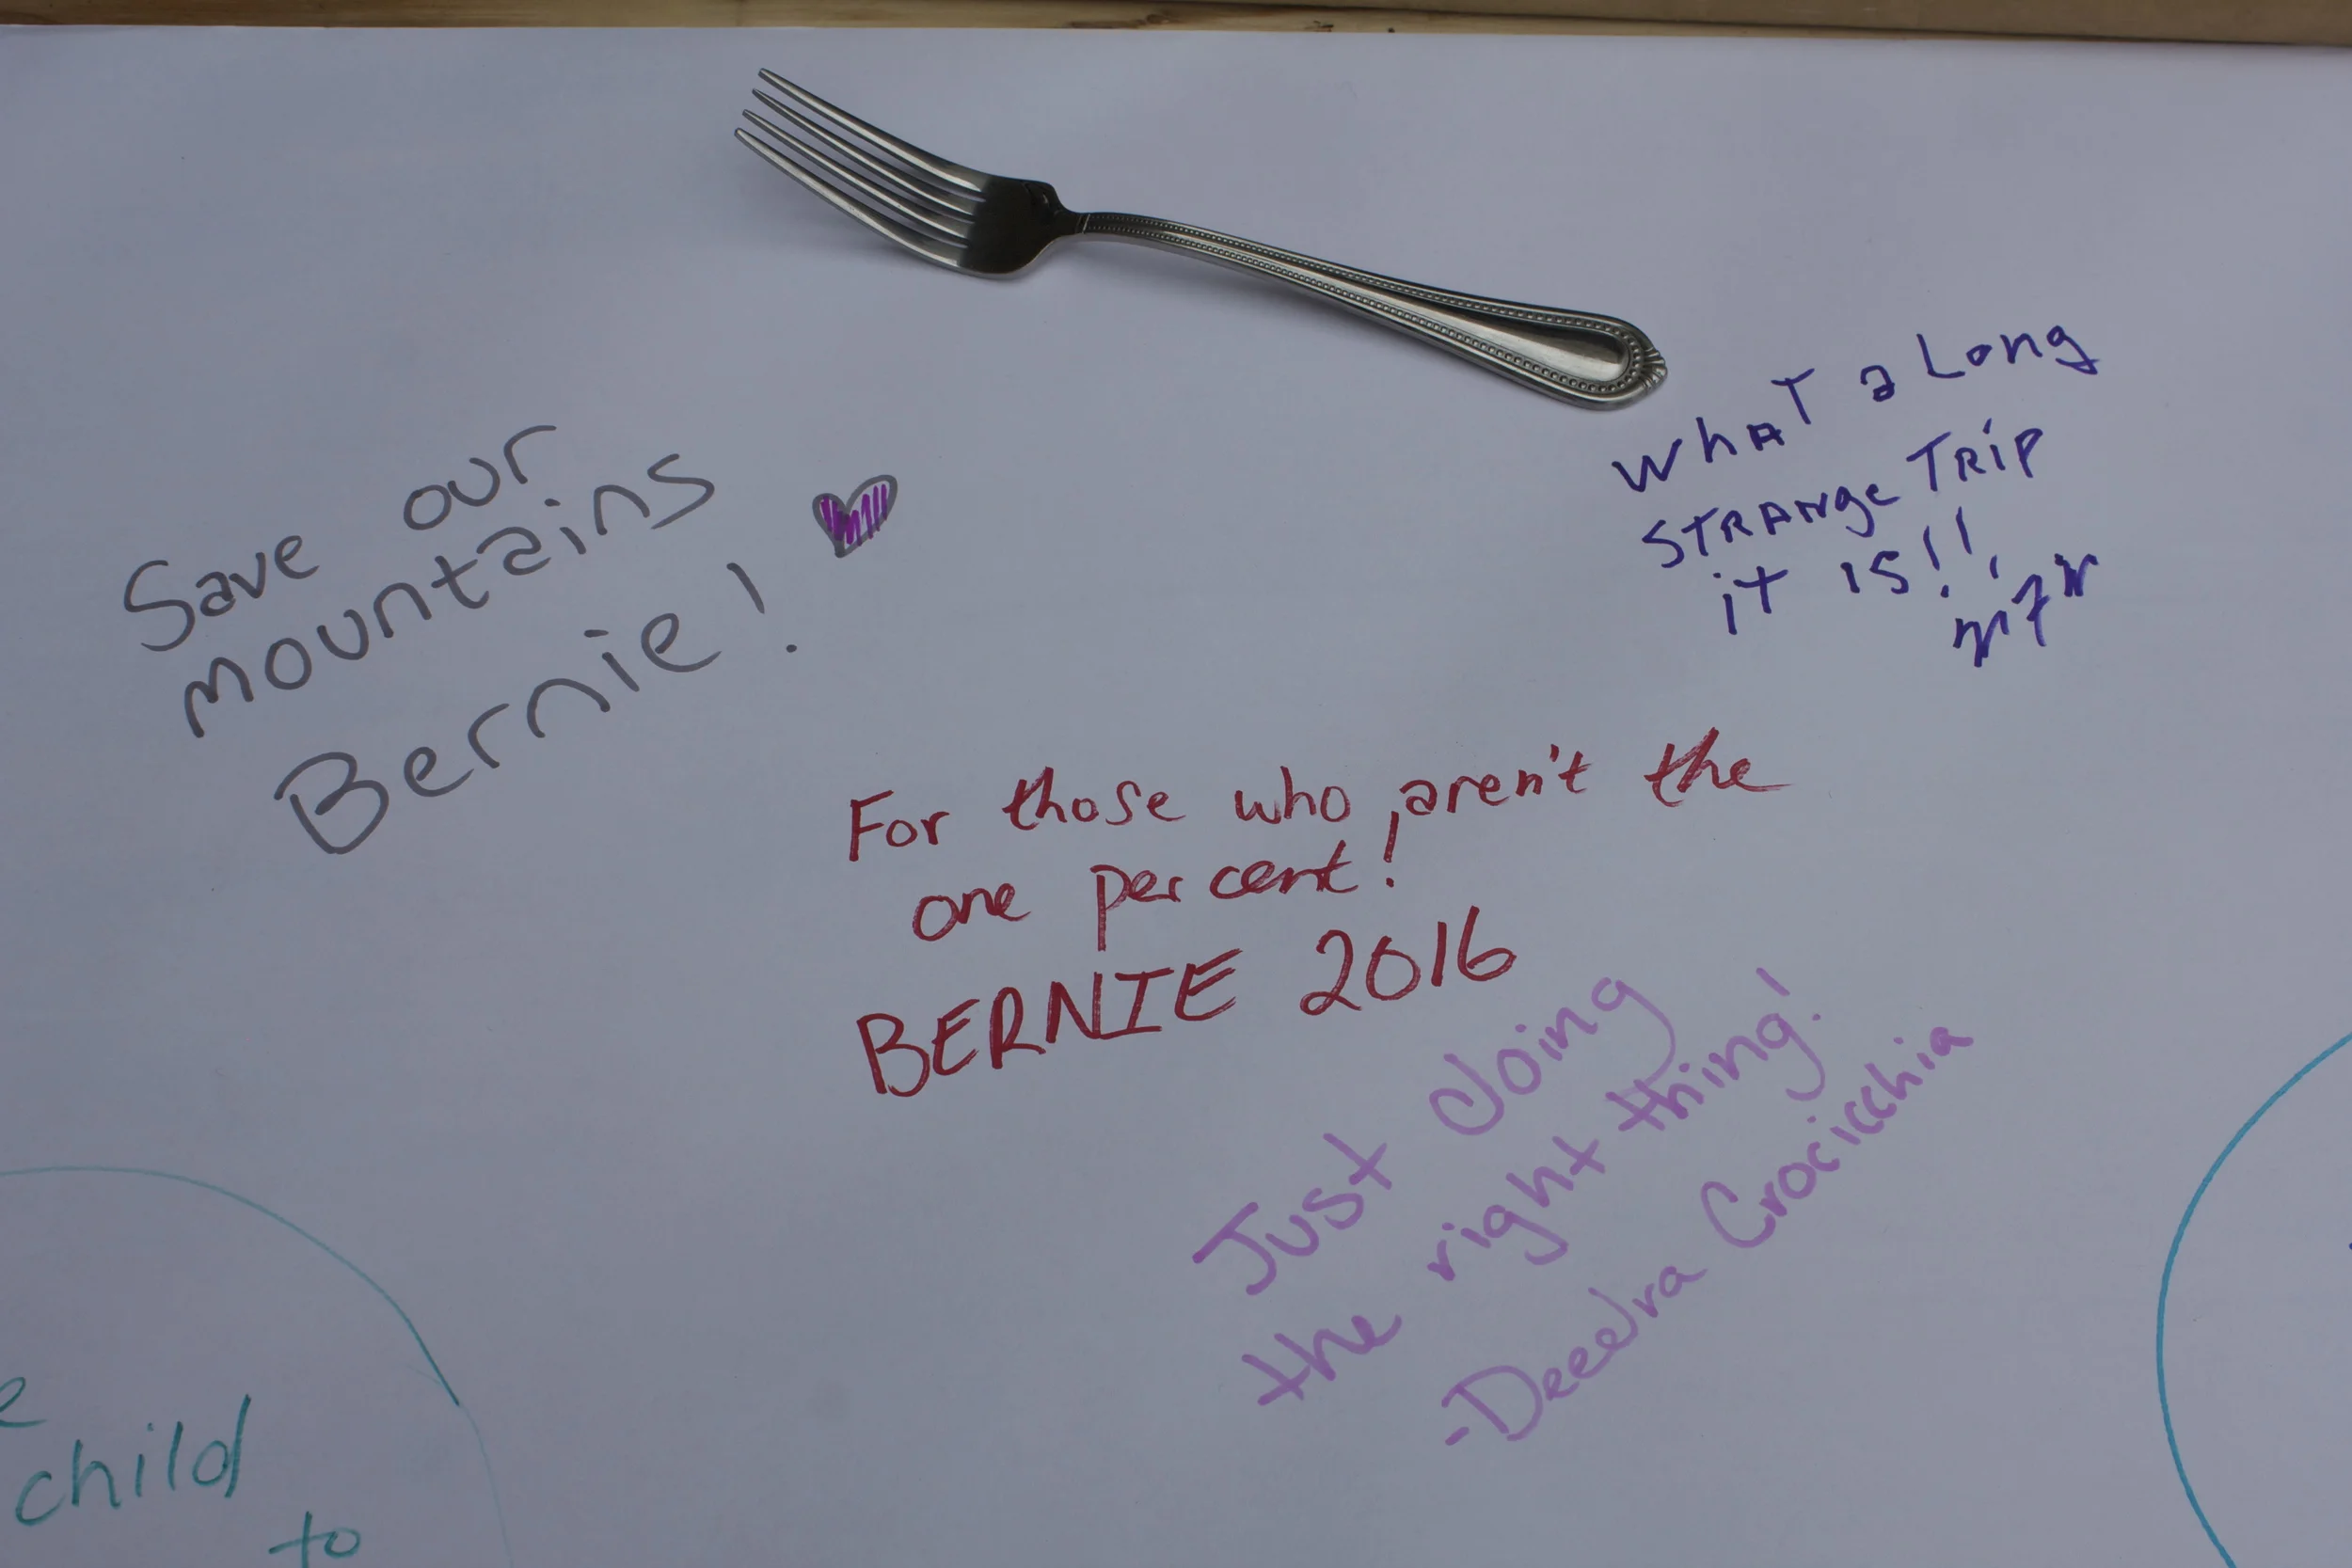 Save our
mountains
Bernie!
WhAT a Long
STRANge TRiP
iT IS!!
For those who aren't the
one per cent!
BERNIE 2016
Just doing
the right thing!
-Deedra Crocicchia
child
to